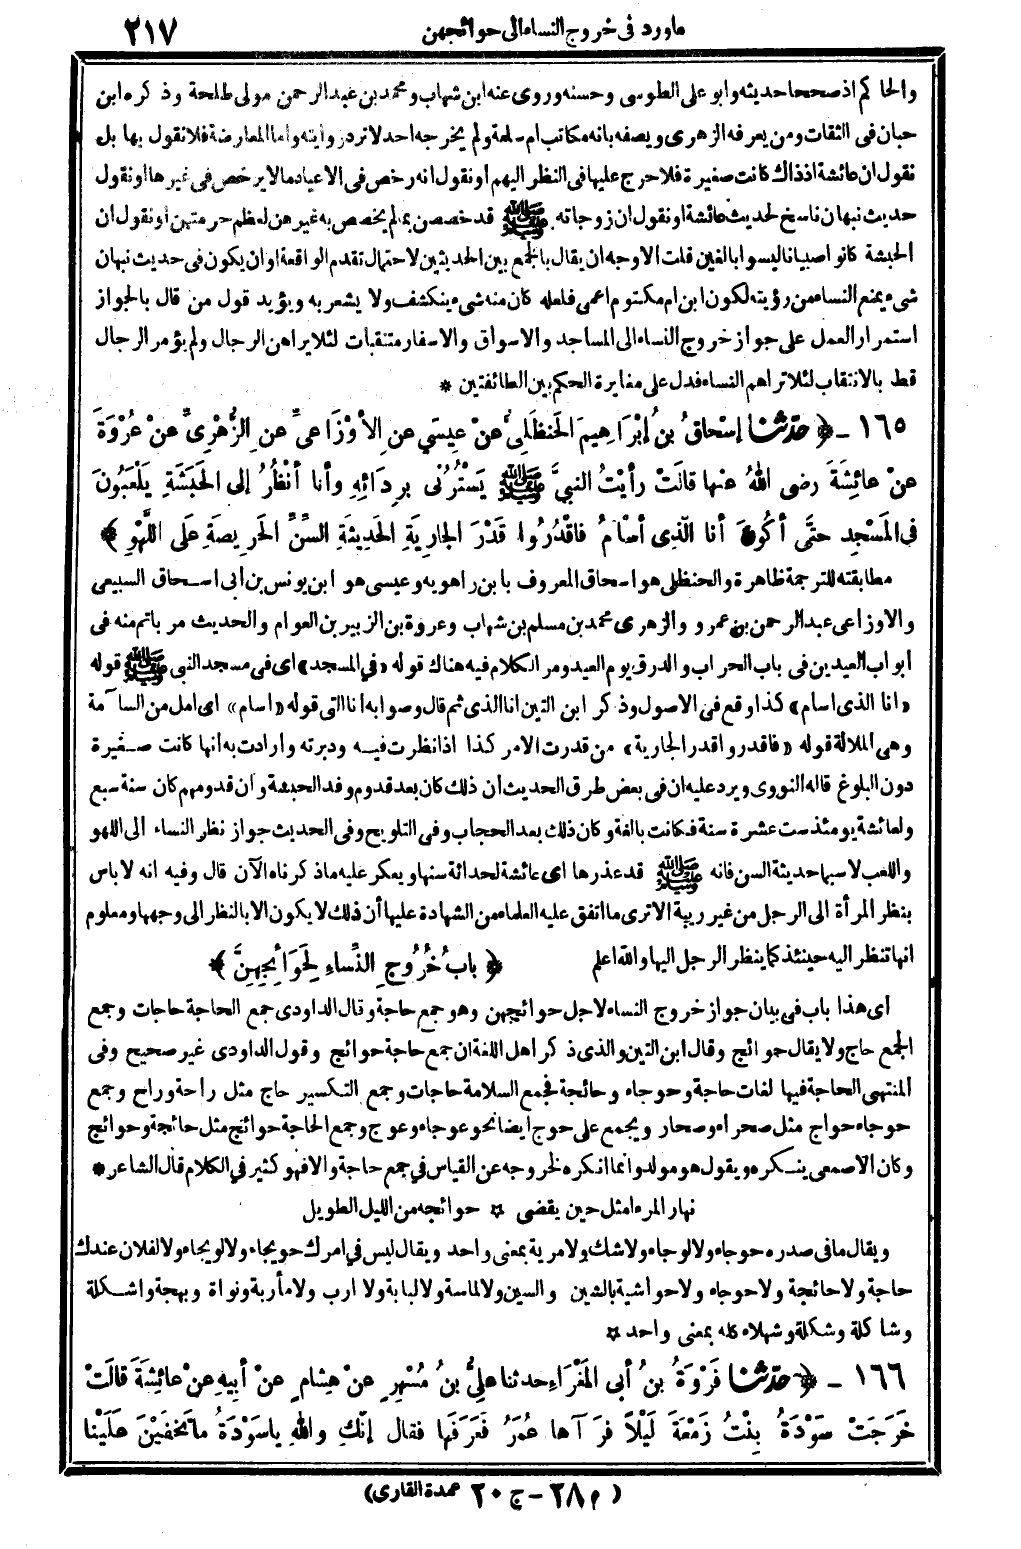 ماورد في خروج النساء الى حوائجهن ٢١٧
والحاكم اذ صححا حديثه وابو على الطوسى وحسنه وروى عنه ابن شهاب ومحمد بن عبد الرحمن مولى طلحة وذكره ابن
حبان فى الثقات ومن يعرفه الزهرى ويصفه بانه مكاتب ام سلمة ولم يخرجه احد لا ترد روايته واما المعارضة فلا نقول بها بل
نقول ان عائشة اذ ذاك كانت صغيرة فلا حرج عليها فى النظر اليهم او نقول انه رخص فى الاعياد ما لا يرخص فى غيرها او نقول
حديث نبهان ناسخ لحديث عائشة او نقول ان زوجاته ﷺ قد خصصن بما لم يخصص به غيرهن لعظم حرمتهن او نقول ان
الحبشة كانوا صبيانا ليسوا بالغين قلت الاوجه ان يقال بالجمع بين الحديثين لاحتمال تقدم الواقعة او ان يكون فى حديث نبهان
شىء يمنع النساء من رؤيته لكون ابن ام مكتوم اعمى فلعله كان منه شىء ينكشف ولا يشعر به ويؤيد قول من قال بالجواز
استمرار العمل على جواز خروج النساء الى المساجد والاسواق والاسفار متنقبات لئلا يراهن الرجال ولم يؤمر الرجال
قط بالانتقاب لئلا تراهم النساء فدل على مغايرة الحكم بين الطائفتين *
١٦٥ - ﴿ حَدَّثَنَا إِسْحَاقُ بنُ إِبْرَاهِيمَ الحَنْظَلِىُّ عنْ عِيسَى عنِ الأوْزَاعِىِّ عنِ الزُّهْرِىِّ عنْ عُرْوَةَ
عنْ عائِشَةَ رضى اللهُ عنها قالَتْ رأيْتُ النبىَّ ﷺ يَسْتُرُنى بِرِدَائِهِ وأنا أنْظُرُ إلى الحَبَشَةِ يَلْعَبُونَ
فى المَسْجِدِ حتَّى أكُونَ أنا الَّذِى أسْأَمُ فاقْدُرُوا قَدْرَ الجارِيَةِ الحَدِيثَةِ السِّنِّ الحَرِيصَةِ عَلَى اللَّهْوِ ﴾
مطابقته للترجمة ظاهرة والحنظلى هو اسحاق المعروف بابن راهويه وعيسى هو ابن يونس بن أبى اسحاق السبيعى
والاوزاعى عبد الرحمن بن عمرو والزهرى محمد بن مسلم بن شهاب وعروة بن الزبير بن العوام والحديث مر باتم منه فى
أبواب العيدين فى باب الحراب والدرق يوم العيد ومر الكلام فيه هناك قوله «في المسجد» اى فى مسجد النبى ﷺ قوله
«انا الذى اسام» كذا وقع فى الاصول وذكر ابن التين انا الذى ثم قال وصوابه أنا التى قوله «اسام» اى امل من السآمة
وهى الملالة قوله «فاقدروا قدر الجارية» من قدرت الامر كذا اذا نظرت فيه ودبرته وارادت به انها كانت صغيرة
دون البلوغ قاله النووى ويرد عليه ان فى بعض طرق الحديث أن ذلك كان بعد قدوم وفد الحبشة وأن قدومهم كان سنة سبع
ولعائشة يومئذ ست عشرة سنة فكانت بالغة وكان ذلك بعد الحجاب وفى التلويح وفى الحديث جواز نظر النساء الى اللهو
واللعب لاسيما حديثة السن فانه ﷺ قد عذرها اى عائشة لحداثة سنها ويعكر عليه ما ذكرناه الآن قال وفيه انه لا باس
بنظر المرأة الى الرجل من غير ريبة الا ترى ما اتفق عليه العلماء من الشهادة عليها أن ذلك لا يكون الا بالنظر الى وجهها ومعلوم
انها تنظر اليه حينئذ كما ينظر الرجل اليها والله اعلم ﴿ بابُ خُرُوجِ النِّساءِ لِحَوَائِجِهِنَّ ﴾
اى هذا باب فى بيان جواز خروج النساء لاجل حوائجهن وهو جمع حاجة وقال الداودى جمع الحاجة حاجات وجمع
الجمع حاج ولا يقال حوائج وقال ابن التين والذى ذكر اهل اللغة ان جمع حاجة حوائج وقول الداودى غير صحيح وفى
المنتهى الحاجة فيها لغات حاجة وحوجاء وحائجة فجمع السلامة حاجات وجمع التكسير حاج مثل راحة وراح وجمع
حوجاء حواج مثل صحراء وصحار ويجمع على حوج ايضا نحو عوجاء وعوج وجمع الحاجة حوائج مثل حائجة وحوائج
وكان الاصمعى ينكره ويقول هو مولد وانما انكره لخروجه عن القياس في جمع حاجة والا فهو كثير في الكلام قال الشاعر *
نهار المرء امثل حين يقضى ✡ حوائجه من الليل الطويل
ويقال ما فى صدره حوجاء ولا لوجاء ولا شك ولا مرية بمعنى واحد ويقال ليس في امرك حويجاء ولا لويجاء ولا لفلان عندك
حاجة ولا حائجة ولا حوجاء ولا حواشية بالشين والسين ولا لماسة ولا لبابة ولا ارب ولا مأربة ونواة وبهجة واشكلة
وشاكلة وشكلة وشهلاء كله بمعنى واحد ✡
١٦٦ - ﴿ حَدَّثَنَا فَرْوَةُ بنُ أبى المَغْرَاءِ حدثنا علِىُّ بنُ مُسْهِرٍ عنْ هِشامٍ عنْ أبيهِ عنْ عائِشَةَ قالَتْ
خَرَجَتْ سَوْدَةُ بِنْتُ زَمْعَةَ لَيْلاً فرَآها عُمَرُ فَعَرَفَها فقال إنَّكِ واللهِ ياسَوْدَةُ ما تَخْفَيْنَ عَلَيْنا
( م ٢٨ - ج ٢٠ عمدة القارى )